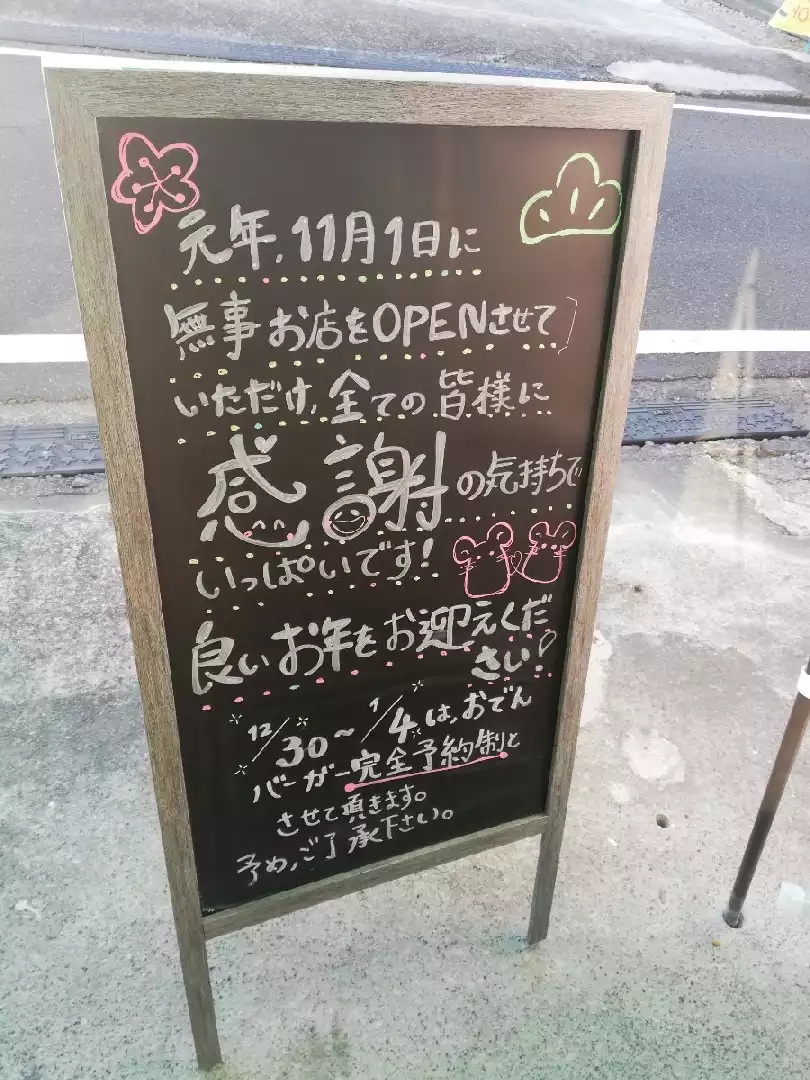 元年、11月1日に
無事お店をOPENさせて
いただけ、全ての皆様に
感謝の気持ちで
いっぱいです!
良いお年をお迎えくだ
さい!
12/30~1/4は、おでん
バーガー完全予約制と
させて頂きます。
予め、ご了承下さい。